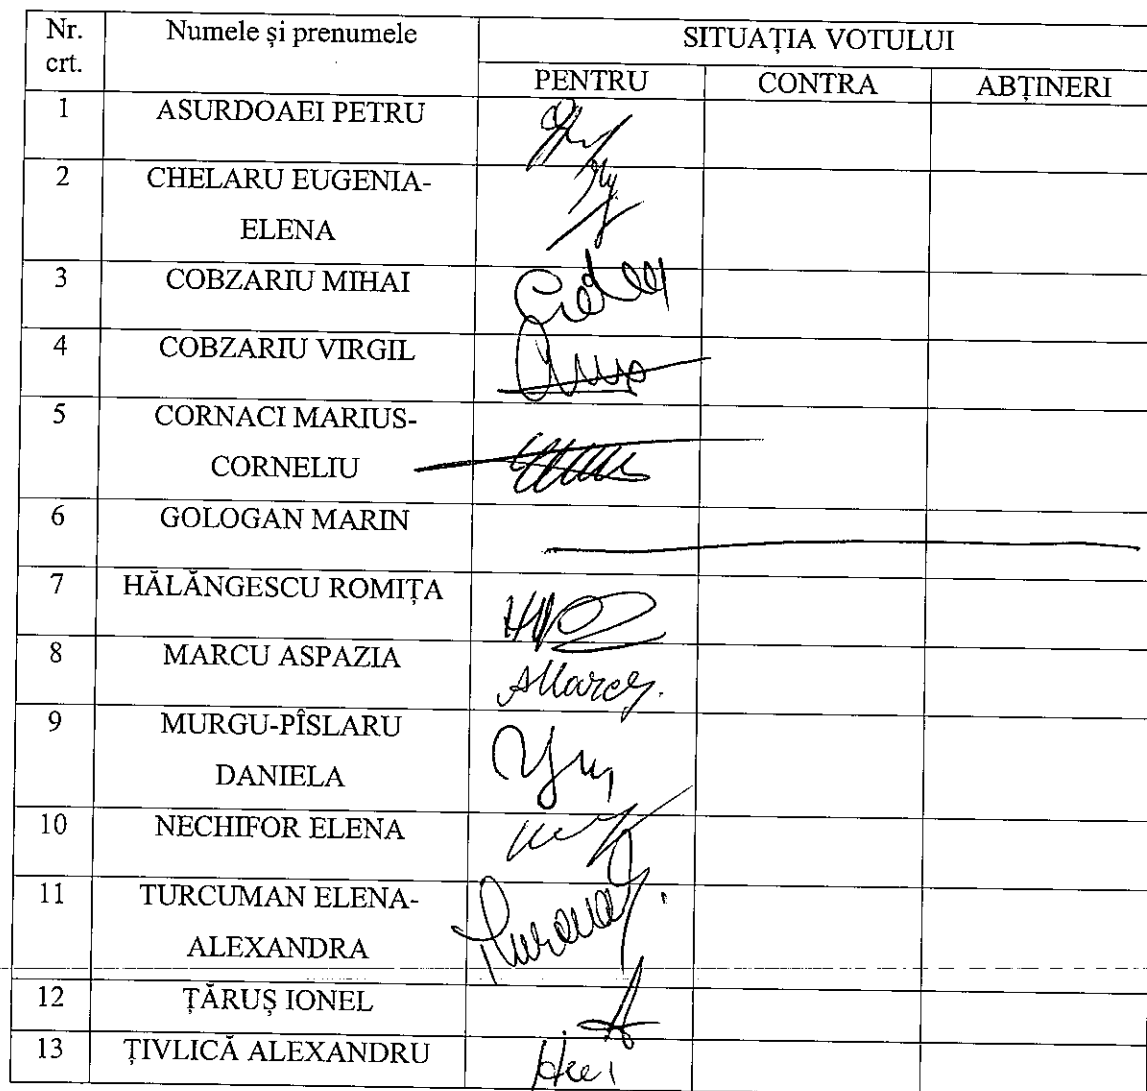 Nr. crt. Numele și prenumele SITUAȚIA VOTULUI
PENTRU CONTRA ABȚINERI
1 ASURDOAEI PETRU
2 CHELARU EUGENIA-
ELENA
3 COBZARIU MIHAI
4 COBZARIU VIRGIL
5 CORNACI MARIUS-
CORNELIU
6 GOLOGAN MARIN
7 HĂLĂNGESCU ROMIȚA
8 MARCU ASPAZIA AMarcu.
9 MURGU-PÎSLARU
DANIELA
10 NECHIFOR ELENA
11 TURCUMAN ELENA-
ALEXANDRA
12 ȚĂRUȘ IONEL
13 ȚIVLICĂ ALEXANDRU